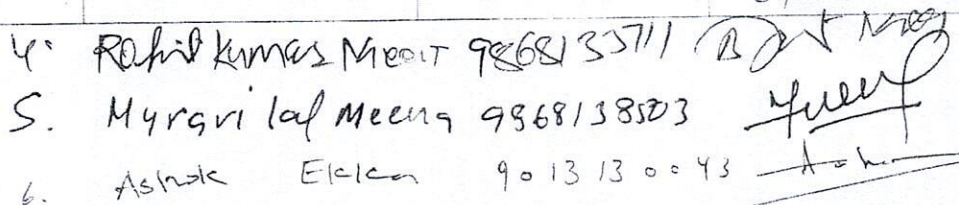 4. Rohit Kumar Meena 9868133711
5. Murari lal Meena 9968138503
6. Ashok Ekka 9013130043 Ash